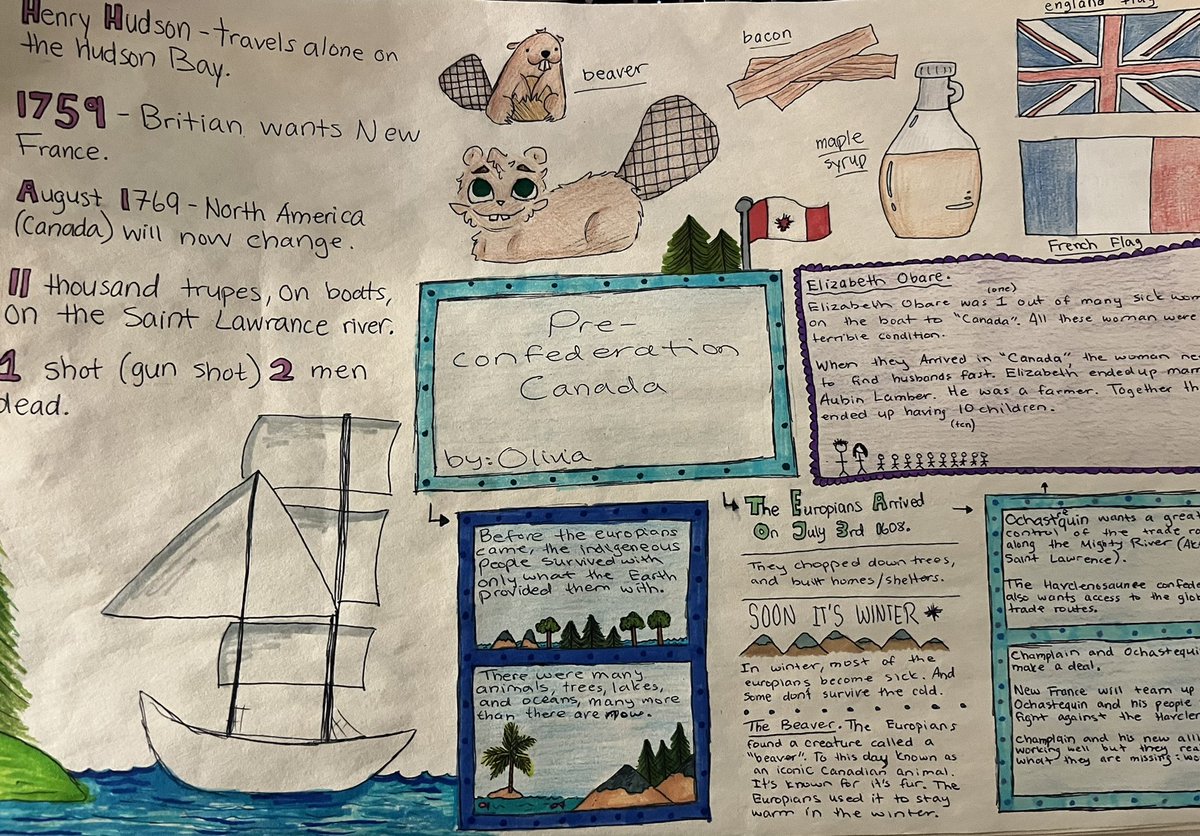 Henry Hudson - travels alone on
the Hudson Bay.
1759 - Britian wants New
France.
August 1769 - North America
(Canada) will now change.
11 thousand trupes, on boats,
on the Saint Lawrance river.
1 shot (gun shot) 2 men
dead.
beaver
bacon
maple
syrup
england flag
French Flag
Pre-
confederation
Canada
by: Olivia
Elizabeth Obare.
(one)
Elizabeth Obare was 1 out of many sick
on the boat to "Canada". All these woman were
terrible condition.
When they Arrived in "Canada", the woman
to find husbands fast. Elizabeth ended up
Aubin Lamber. He was a farmer. Together
ended up having 10 children.
(ten)
Before the europians
came, the indigeneous
people survived with
only what the Earth
provided them with.
There were many
animals, trees, lakes,
and oceans, many more
than there are now.
The Europians Arrived
On July 3rd 1608.
They chopped down trees,
and built homes/shelters.
SOON IT'S WINTER
In winter, most of the
europians become sick. And
Some don't survive the cold.
The Beaver. The Europians
found a creature called a
"beaver". To this day known as
an iconic Canadian animal.
It's known for it's fur. The
Europians used it to stay
warm in the winter.
Ochastequin wants a
control of the trade
along the Mighty River (Aka
Saint Lawrence).
The Havclenosaunee
also wants access to the
trade routes.
Champlain and
make a deal.
New France will team up
Ochastequin and his people
fight against the
Champlain and his new
working well but they
what they are missing: